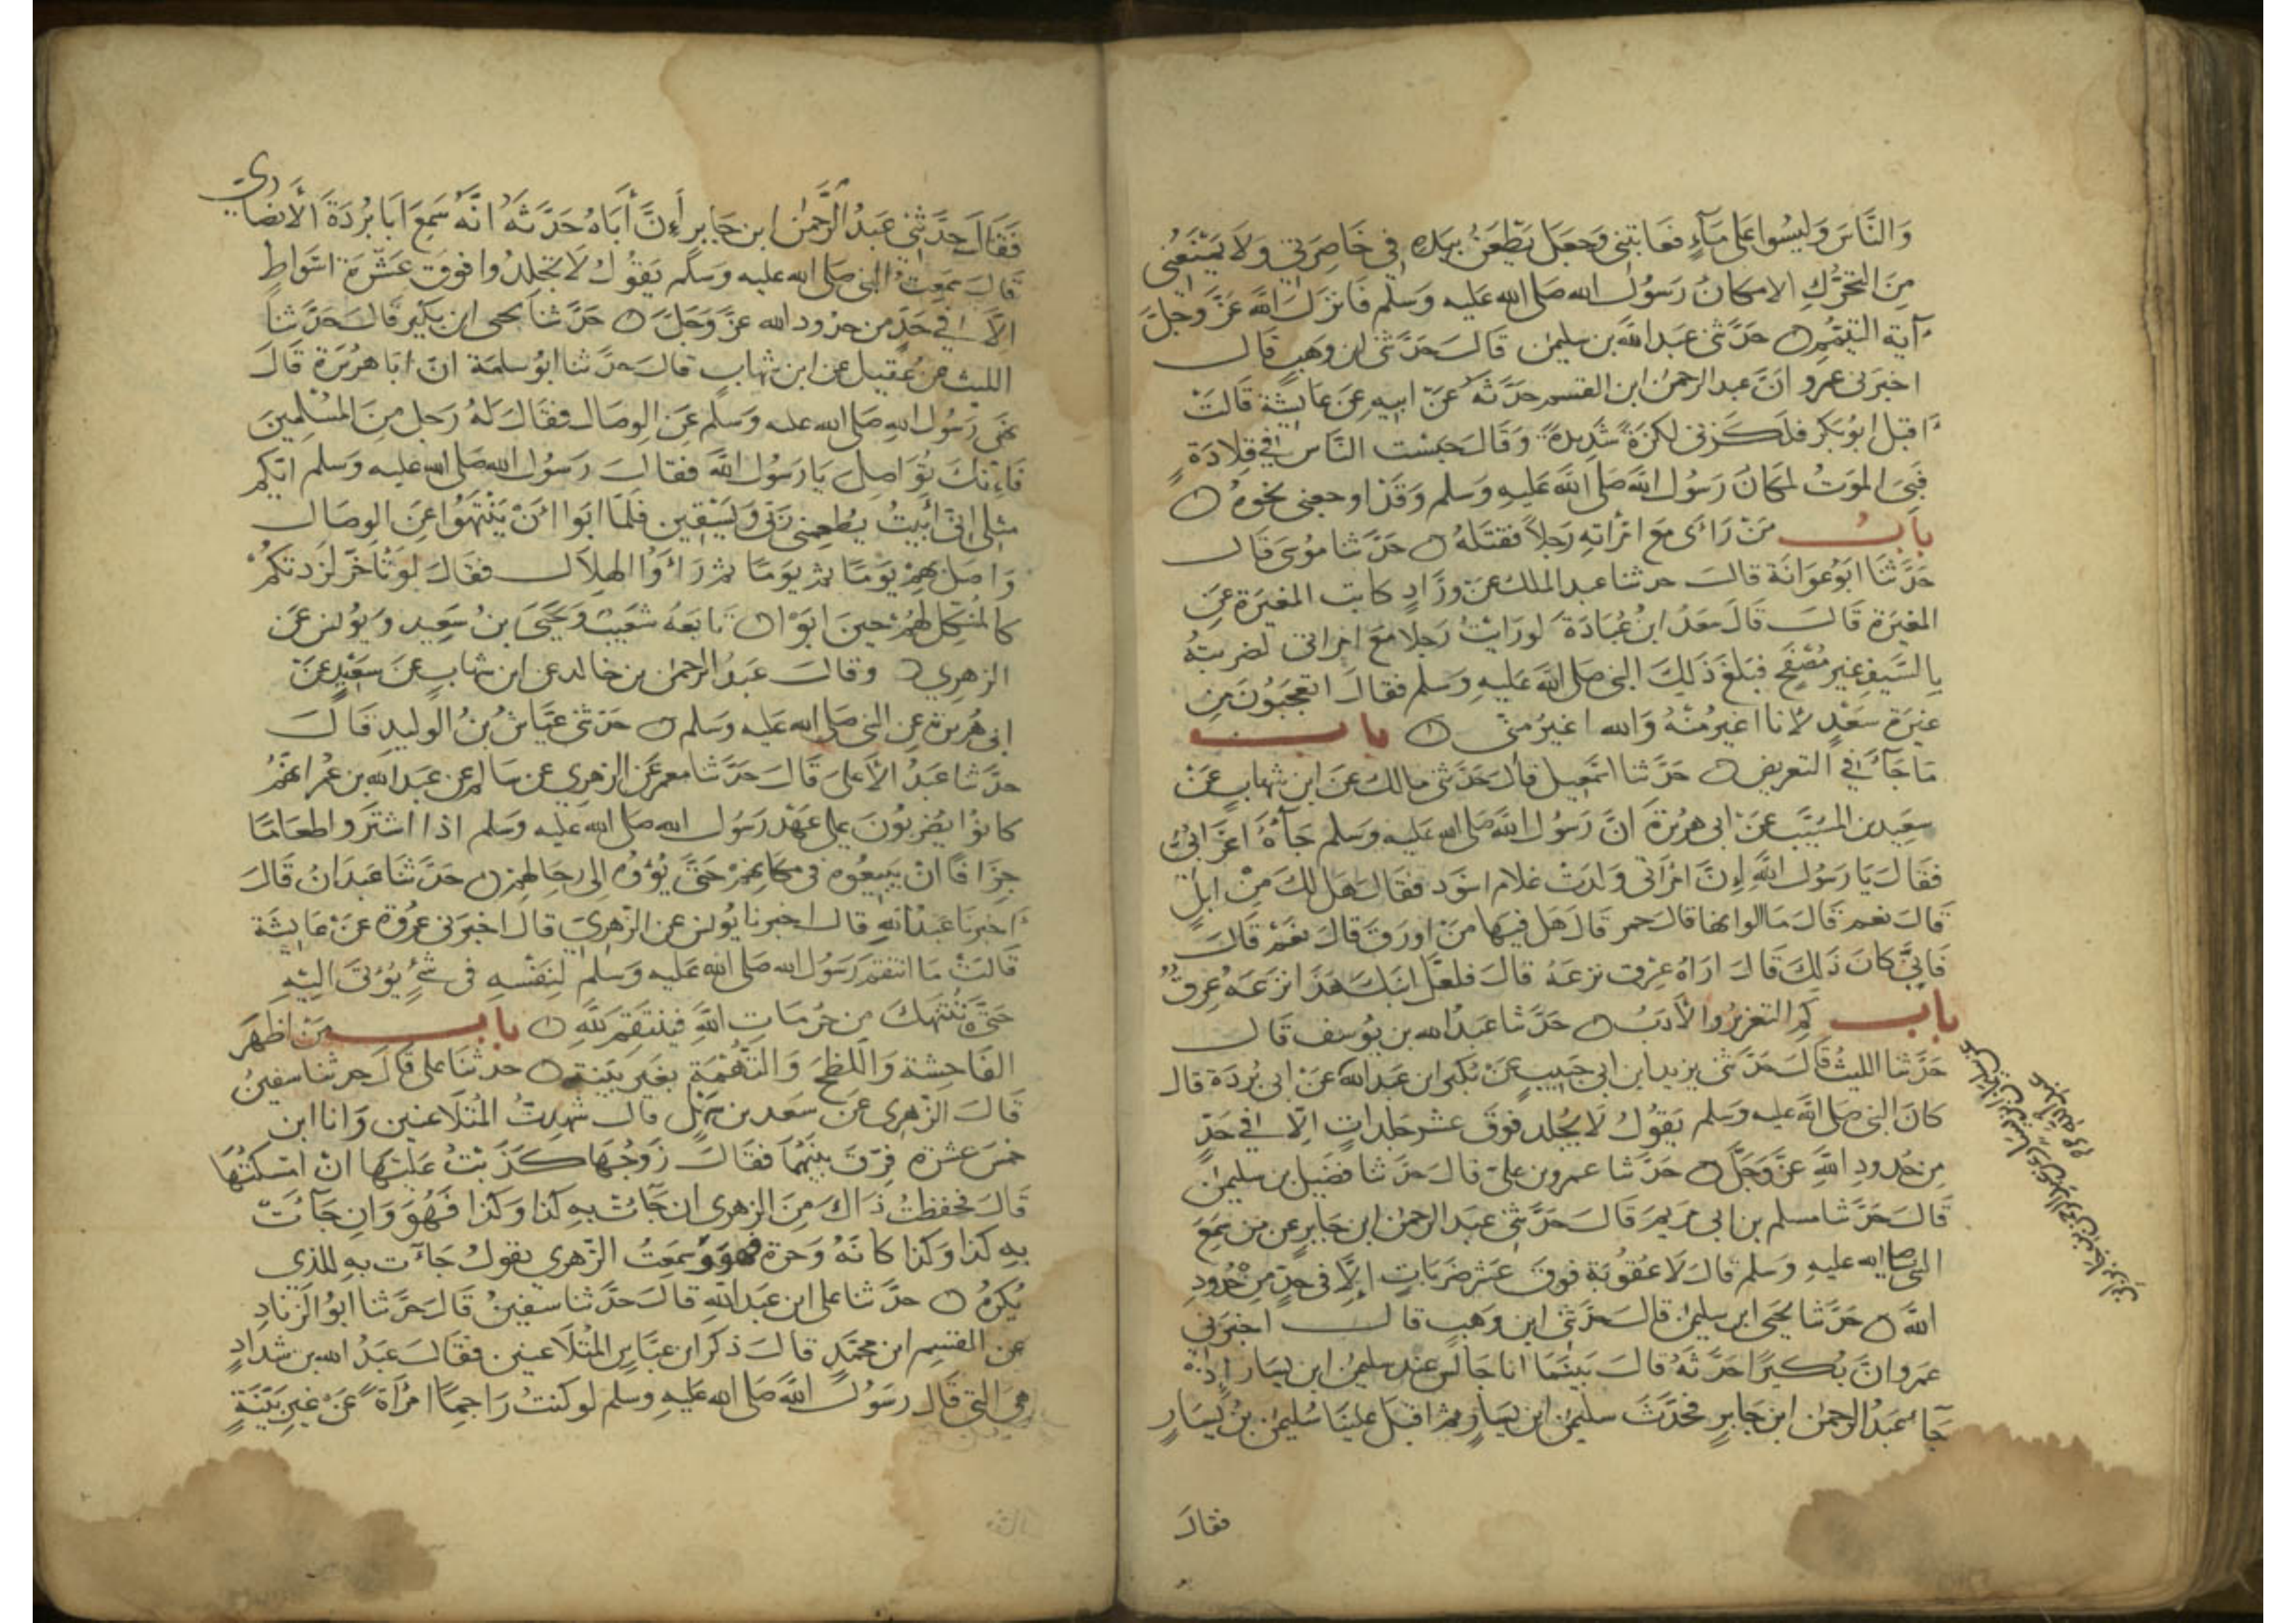 وَالنَّاسَ وَلَيْسُوا عَلَى مَآءٍ فَعَاتَبَنِي وَجَعَلَ يَطْعَنُ بِيَدِهِ فِي خَاصِرَتِي وَلَا يَمْنَعُنِي
مِنَ التَّحَرُّكِ الا مكانُ رَسُولِ الله صَلى الله عَليه وَسَلم فَانزَلَ اللَّهُ عَزَّ وَجَلَّ
آية التيَمُّمِ حَدَّثَنِي عَبد الله بن سليمن قَالَ حَدَّثَنِي ابن وَهبٍ قَالَ
اخبَرَنى عمرو انَّ عبد الرحمن ابن القسم حَدَّثَهُ عَنْ ابيهِ عَنْ عَايِشَة قَالَتْ
اقبَل ابُو بَكر فلكزنى لكزَةً شَدِيدةً وَقَالَ حَبَسْتِ النَّاسَ فِي قِلَادَةٍ
فَبِيَ المَوتُ لمكانِ رَسُولِ اللَّهِ صَلى اللَّهُ عَليهِ وَسَلم وَقَدْ اوجعنى نحوهُ
بابُ مَنْ رَاى مَعَ امْرَاتِهِ رَجُلاً فَقتَلَهُ حَدَّثنا مُوسَى قَالَ
حَدَّثَنَا ابُو عَوَانَة قالَ حدثنا عبد الملك عَنْ ورَّادٍ كاتب المغيرَة عَنِ
المغِيَرةِ قَالَ قَالَ سَعدُ ابنُ عُبَادَةَ لَو رَايْتُ رَجُلا مَعَ امراتى لضربتُهُ
بالسَّيفِ غير مُصْفَحٍ فبَلغَ ذَلِكَ النبي صَلى اللَّهُ عَليهِ وَسَلم فقالَ اتعجَبُونَ مِن
غيرَةِ سَعْدٍ لَانا اغيَرُ مِنْهُ وَالله اغيَرُ مِنى باب
مَا جَآءَ فِي التعريض حَدَّثنا اسمعيل قالَ حَدَّثني مالك عَن ابن شهاب عَنْ
سَعيدِ بن المسَيَّب عَنْ ابى هريرَةَ انَّ رَسُولَ اللَّهِ صَلى الله عَليه وَسَلم جَآءَهُ اعرَابىٌّ
فقالَ يَا رَسُولَ اللَّهِ إِنَّ امْرَأتي وَلدَتْ غلام اسْوَد فقالَ هَل لكَ مِنْ ابلٍ
قالَ نعم قَالَ مَا الوانها قالَ حمر قَالَ هَل فيهَا مِنْ اورَقَ قَالَ نعَمْ قَالَ
فَانىَّ كَانَ ذَلِكَ قَالَ ارَاهُ عِرْق نزعَهُ قالَ فلعَلَّ ابنَكَ هَذا نزعَهُ عِرقٌ
باب كم التعزيرُ وَالأَدَبُ حَدَّثنا عَبدُ الله بن يُوسف قَالَ
حَدَّثنا الليثُ قَالَ حَدَّثنى يزيد ابن ابي حَبيبٍ عَنْ بُكير ابن عَبد الله عَنْ ابى بُردَة قال
كانَ النبي صَلى اللَّه عَليه وَسَلم يَقُولُ لَا يُجْلد فَوقَ عشر جَلدَاتٍ الّا في حَدٍّ
مِن حُدودِ اللَّهِ عَزَّ وَجَلَّ حَدَّثنا عمرو بن عليّ قالَ حَدَّثنا فضَيل بن سليمن
قَالَ حَدَّثنا مسلم بن ابى مَريَمَ قَالَ حَدَّثني عَبد الرحمن ابن جَابرٍ عن مَن سَمِعَ
النبي صلى الله عليهِ وَسَلم قالَ لَا عُقُوبَةَ فَوقَ عَشر ضَربَاتٍ إِلَّا فى حَدٍّ مِنْ حُدُودِ
اللَّهِ حَدَّثنا يَحيَى ابن سليمن قالَ حَدَّثني ابن وَهبٍ قالَ اخبَرَنى
عمرو انَّ بُكيرًا حَدَّثَهُ قالَ بَينَمَا انا جَالس عِند سليمن ابن يَسَار اذ
جَاءَ عَبدُ الرحمن ابن جَابرٍ فحَدَّثَ سليمن ابن يَسَارٍ ثم اقبَل عَلينَا سُليمن بن يَسَارٍ
فقالَ
فَقالَ حَدَّثَنِي عَبدُ الرَّحمن ابن جَابر أَنَّ أَبَاهُ حَدَّثَهُ انَّهُ سَمِعَ ابَا بُرْدَةَ الأنصَاري
قالَ سَمِعتُ النبي صَلى الله عليه وَسَلم يَقُولُ لَا تجلدُوا فوقَ عَشْرَة اسْوَاطٍ
الَّا فِي حَدٍّ من حدُود الله عَزَّ وَجَلَّ حَدَّثنا يحيى ابن بُكَيْر قَالَ حَدَّثنا
الليث عن عُقيل عن ابن شهابٍ قالَ حدَّثنا ابُو سلمَة انّ ابَا هريرَة قَالَ
نَهَى رَسُولُ اللهِ صَلى الله عليه وَسَلم عَنِ الوِصَال فقَالَ لَهُ رَجل مِنَ المسْلِمِينَ
فَإِنَّكَ تُوَاصِلُ يَا رَسُولَ اللَّهِ فقالَ رَسُولُ الله صَلى الله عليه وَسَلم ايّكم
مثلى انىّ أَبيتُ يُطعِمنى رَبّى وَيَسْقِين فَلَمَّا ابَوا أنْ يَنْتَهُوا عَنِ الوِصَالِ
وَاصَل بهِمْ يَوْمًا ثم يَوْمًا ثم رَاَوُا الهِلَالَ فقالَ لَو تَاخَّرَ لَزدتكمْ
كالمُنَكِّلِ لهُمْ حِينَ ابَوْا تابَعَهُ شعَيبٌ وَيَحْيَى بنُ سَعِيدٍ وَيُونس عَن
الزهرِي وَقالَ عَبدُ الرحمن بن خالد عن ابن شهابٍ عَنْ سَعِيدٍ عَنْ
ابى هُريرة عن النبي صَلى الله عَليه وَسَلم حَدّثني عيّاشُ بْنُ الوليدِ قَالَ
حدَّثنا عَبدُ الأَعلىَ قَالَ حَدَّثنا معمر عَن الزهري عن سَالم عن عَبد الله بن عمر انهمْ
كانُوا يُضرَبُونَ على عَهْد رَسُول الله صَلى الله عَليه وَسَلم اذا اشتَروا طعَامًا
جزَافًا انْ يبيعُوه فى مكانِهمْ حَتىَّ يُؤوُهُ إلى رحَالهمْ حَدَّثنا عَبدَانُ قَالَ
اخبرنا عَبد اللهِ قالَ اخبرنا يُونس عن الزّهريّ قالَ اخبَرَنى عروَة عَنْ عَايشَة
قَالَتْ مَا انتقمَ رَسُولُ الله صَلى الله عَليه وَسَلم لِنَفْسِهِ فى شَىْءٍ يُؤْتىَ اليْهِ
حَتىَّ تُنْتهَكَ مِن حُرُمَاتِ اللَّهِ فيَنتقِمَ للَّهِ باب مَنْ اظهَرَ
الفَاحِشة وَاللطخَ وَالتّهْمَة بغير بَيّنة حدثنا على قَالَ حدثنا سفينُ
قَالَ الزّهري عَنْ سَعد بن سَهْلٍ قَالَ شهدتُ المُتلَاعنين وَانا ابن
خمسَ عشرة فرّقَ بَينَهُمَا فقالَ زَوْجُهَا كَذبتُ عَليْهَا انْ امسَكتُهَا
قَالَ فحفظتُ ذَاكَ مِنَ الزهرى ان جَاءتْ بهِ كَذا وَكذا فَهُوَ وَان جَاءَتْ
بهِ كذا وَكذا كانَّهُ وَحرَة فهو وَسَمعتُ الزّهري يقولُ جَاءَت بهِ للذى
يُكرَهُ حدَّثنا على ابن عَبد اللَّهِ قالَ حَدَّثنا سفينُ قَالَ حَدَّثنا ابُو الزنادِ
عن القسم ابن محمّدٍ قالَ ذكرَ ابن عبَّاس المُتلَاعنين فقالَ عَبدُ الله بن شدادٍ
هي التي قَالَ رسُولُ اللَّهِ صَلى الله عَليهِ وَسَلم لَو كنتُ رَاجمًا امْرَأةً عَنْ غير بَيِّنَةٍ